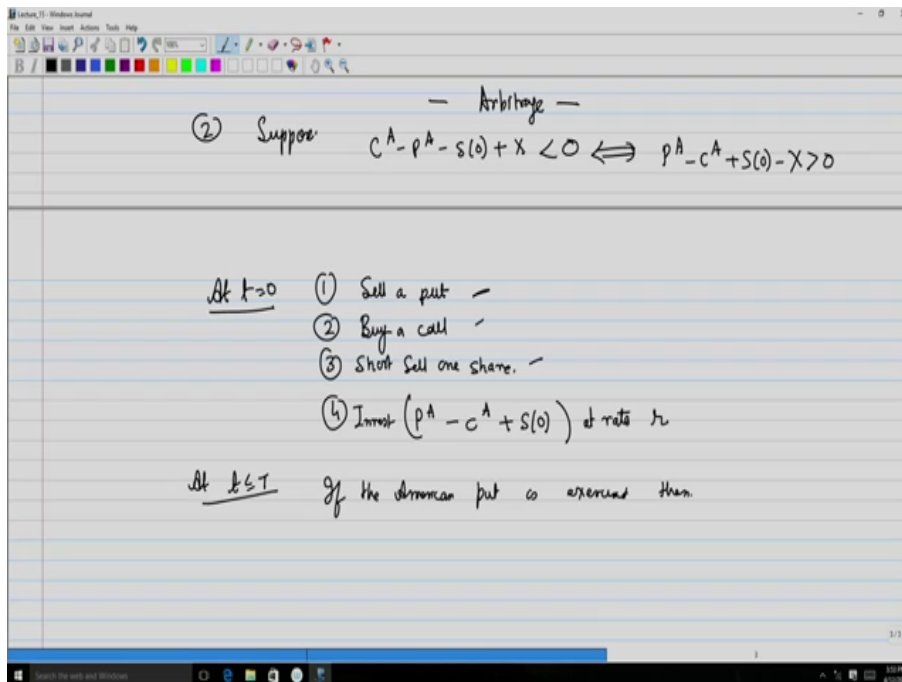 Lecture_15 - Windows Journal
File Edit View Insert Actions Tools Help
B I
— Arbitrage —
② Suppose C^A - P^A - S(0) + X < 0 ⟺ P^A - C^A + S(0) - X > 0
At t=0 ① Sell a put –
② Buy a call –
③ Short sell one share. –
④ Invest (P^A - C^A + S(0)) at rate r
At t ≤ T If the American put is exercised then.
3/3
3
Search the web and Windows